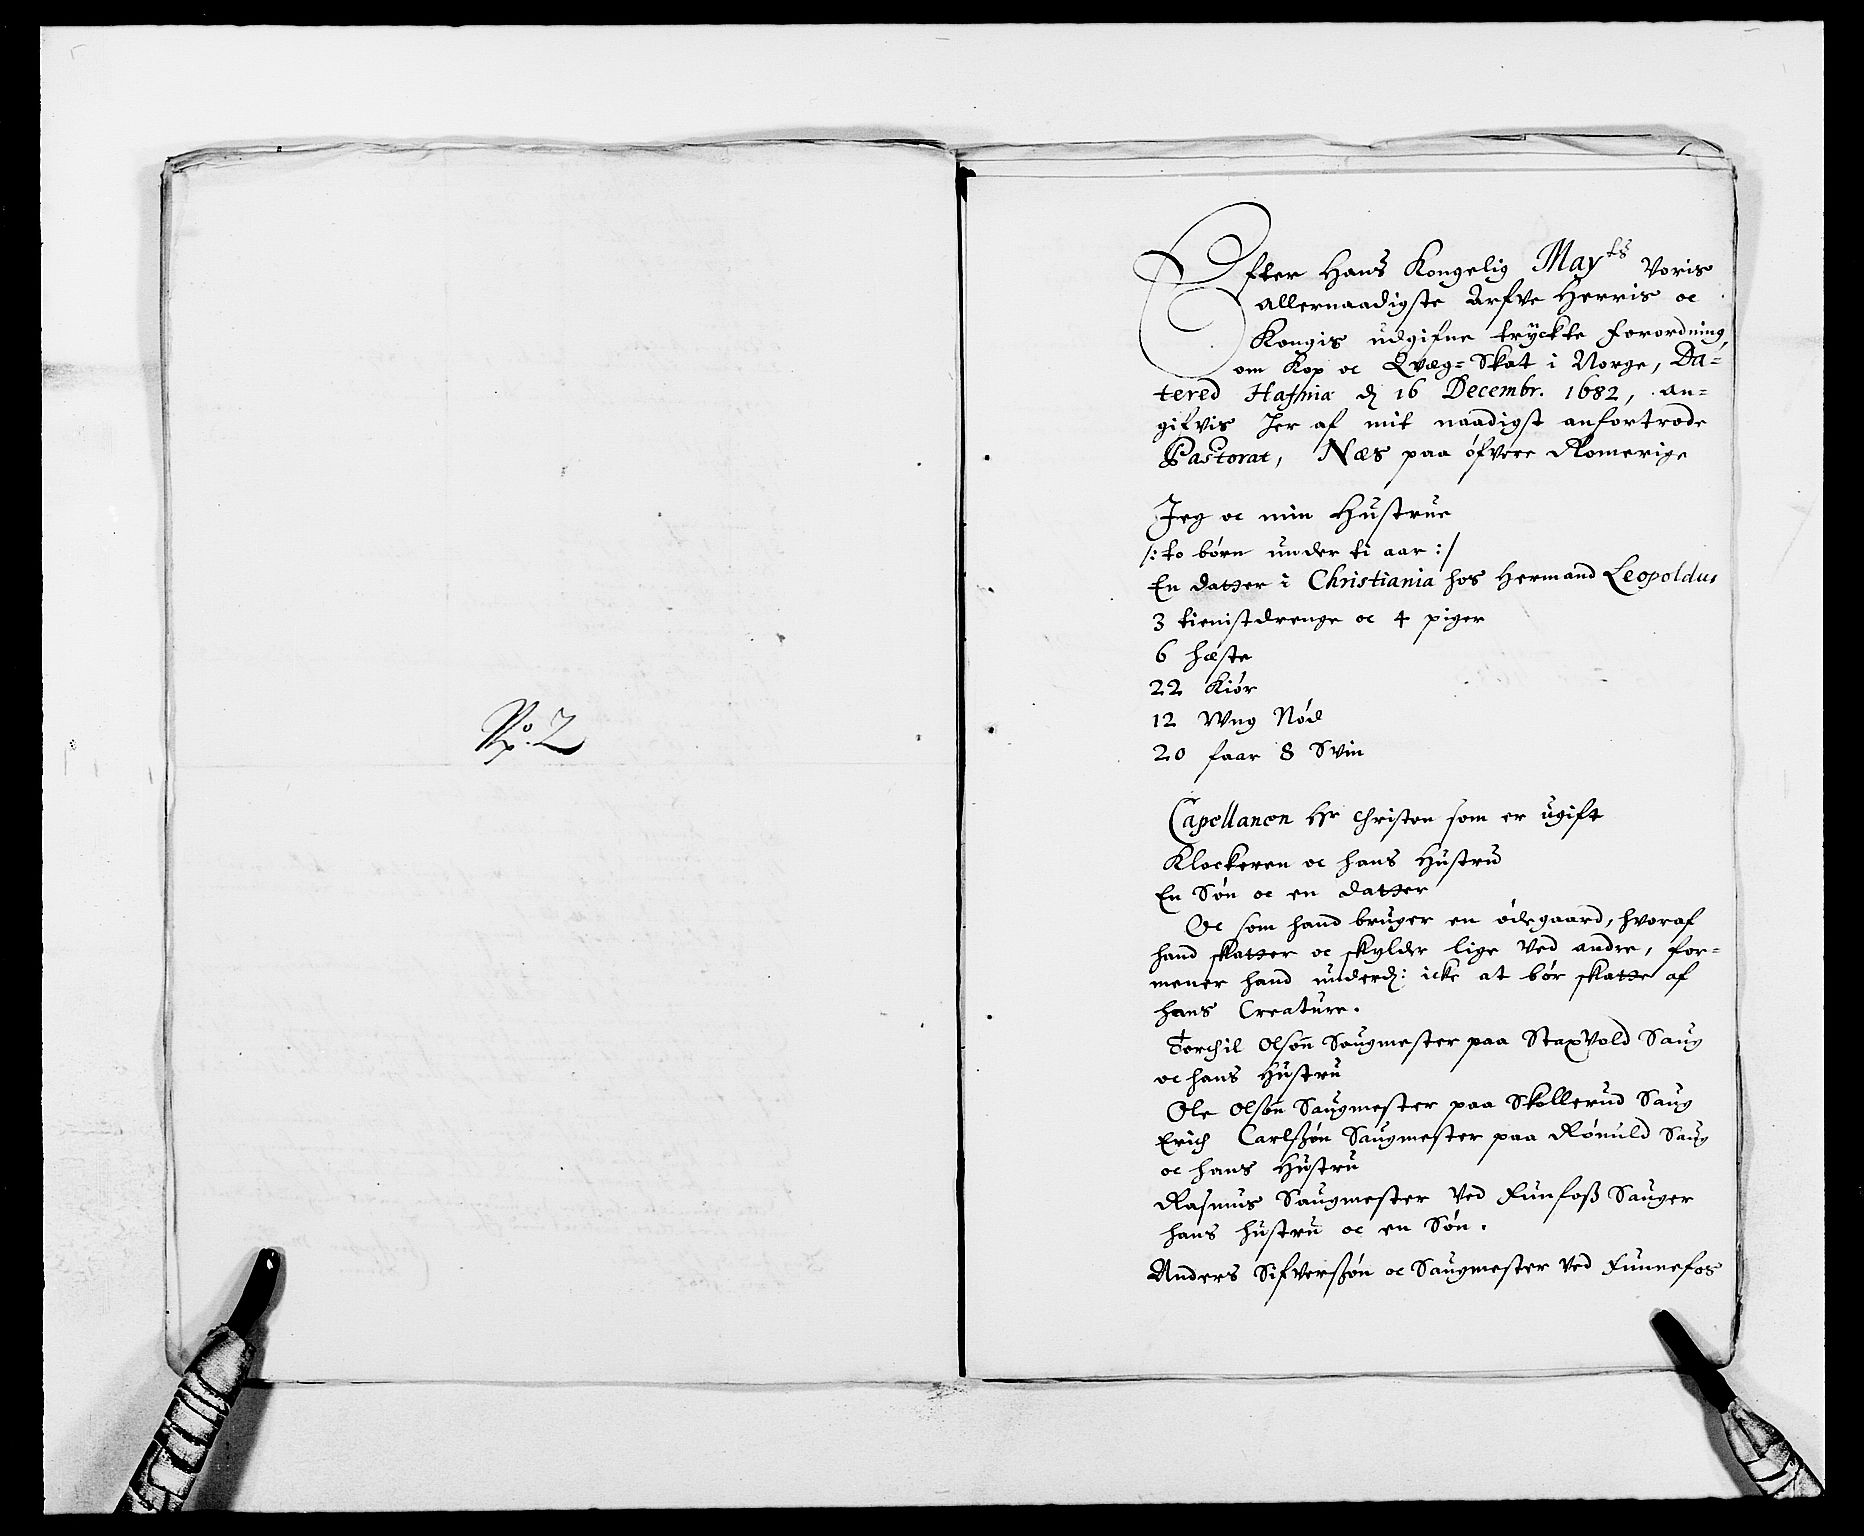 No. 2
Efter Hans Kongelig Mayts Voris
allernaadigste Arfve Herris oc
Kongis udgifne tryckte Forordning,
om Kop oc Qvæg=Skat i Norge, Da=
tered Hafniæ d 16 Decembr. 1682, an=
gifvis her af mit naadigst anfortrode
Pastorat, Næs paa öfvere Romerige
Jeg oc min Hustrue
/: to börn under ti aar :/
En datter i Christiania hos Hermand Leopoldus
3 tienistdrenge oc 4 piger
6 hæste
22 Kiör
12 Wng Nöd
20 faar 8 Svin
Capellanen Hr Christen som er ugift
Klockeren oc hans Hustru
En Sön oc en datter
Oc som hand bruger en ödegaard, hvoraf
hand skatter oc skylder lige ved andre, for=
mener hand underd: icke at bör skatte af
hans Creature.
Torchil Olsön Saugmester paa StaxVold Saug
oc hans Hustru
Ole Olsön Saugmester paa Skollerud Saug
Erich Carlszön Saugmester paa Rönuld Saug
oc hans Hustru
Rasmus Saugmester Ved Funfosz Sauger
hans hustru oc en Sön.
Anders Sifverszön oc Saugmester Ved Funnefos